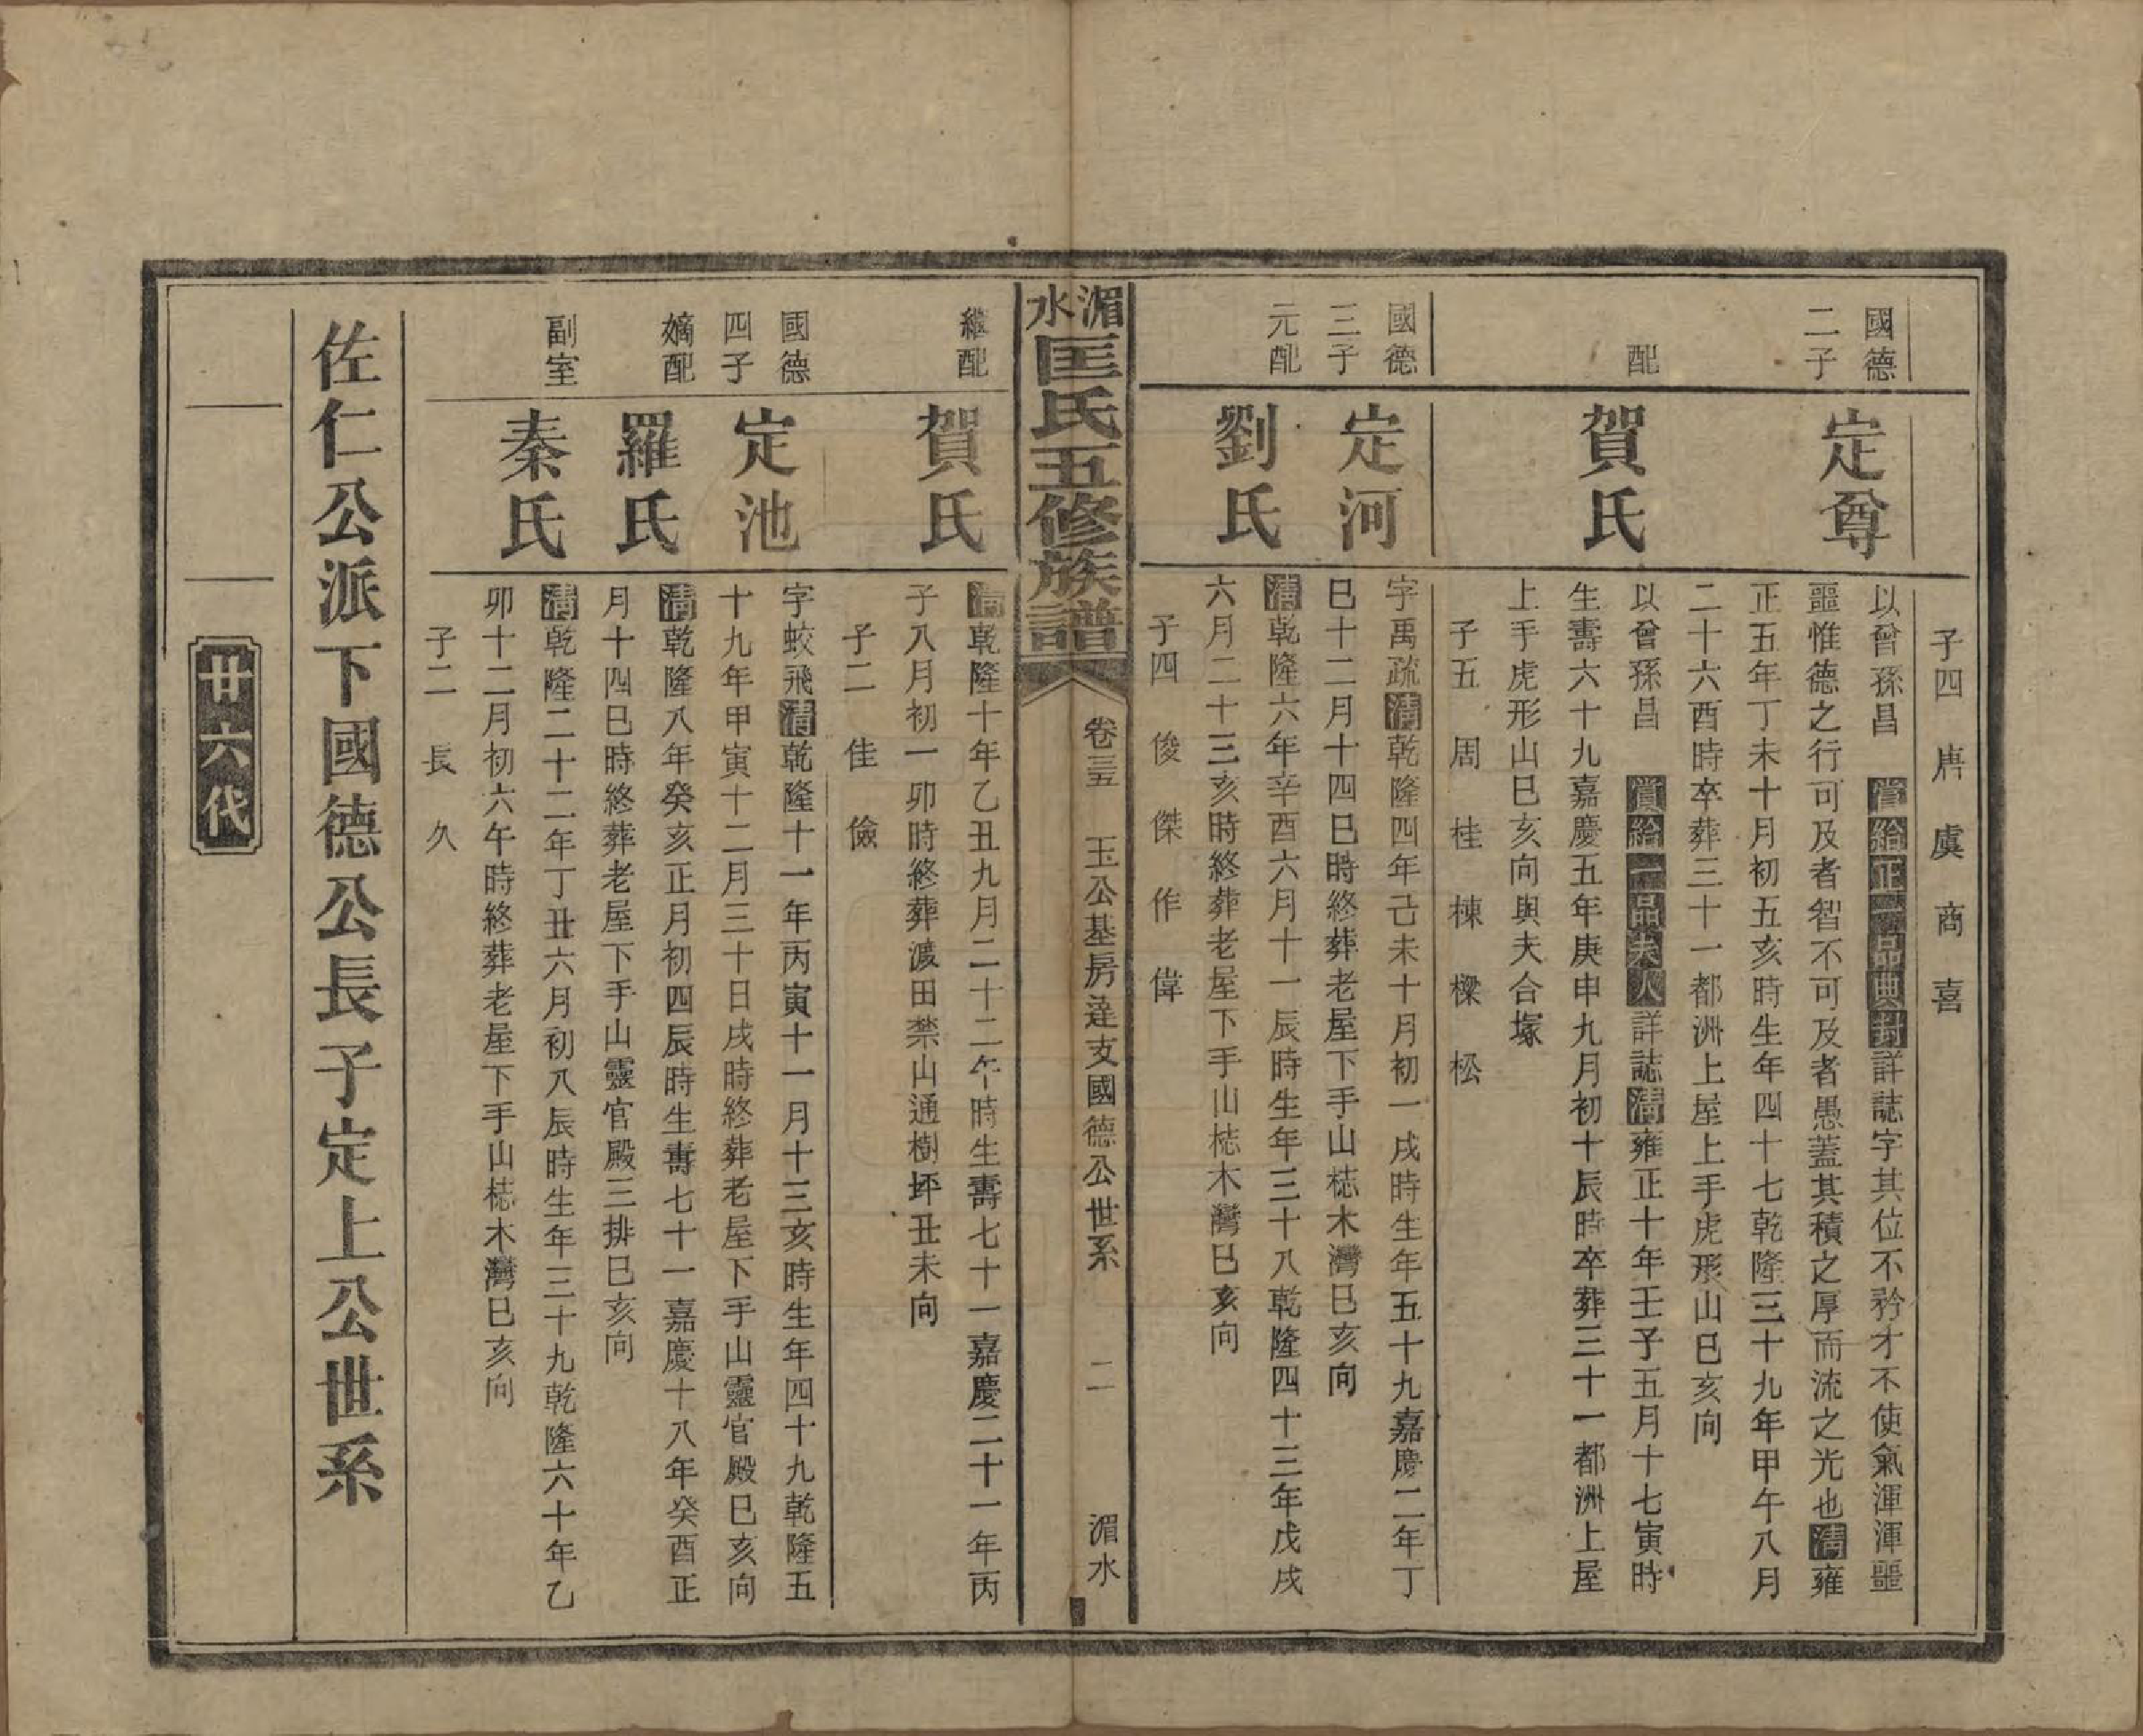 子四 唐 虞 商 喜
國德二子 定尊 以曾孫昌 賞給正一品典封詳誌字其位不矜才不使氣渾渾噩
噩惟德之行可及者智不可及者愚蓋其積之厚而流之光也清雍
正五年丁未十月初五亥時生年四十七乾隆三十九年甲午八月
二十六酉時卒葬三十一都洲上屋上手虎形山巳亥向
配 賀氏 以曾孫昌 賞給一品夫人詳誌清雍正十年壬子五月十七寅時
生壽六十九嘉慶五年庚申九月初十辰時卒葬三十一都洲上屋
上手虎形山巳亥向與夫合塚
子五 周 桂 棟 樑 松
國德三子 定河 字禹疏清乾隆四年己未十月初一戌時生年五十九嘉慶二年丁
巳十二月十四巳時終葬老屋下手山梽木灣巳亥向
元配 劉氏 清乾隆六年辛酉六月十一辰時生年三十八乾隆四十三年戊戌
六月二十三亥時終葬老屋下手山梽木灣巳亥向
子四 俊 傑 作 偉
湄水匡氏五修族譜 卷三五 玉公基房達支國德公世系 二 湄水
繼配 賀氏 清乾隆十年乙丑九月二十二午時生壽七十一嘉慶二十一年丙
子八月初一卯時終葬渡田禁山通樹坪丑未向
子二 佳 儉
國德四子 定池 字蛟飛清乾隆十一年丙寅十一月十三亥時生年四十九乾隆五
十九年甲寅十二月三十日戌時終葬老屋下手山靈官殿巳亥向
嫡配 羅氏 清乾隆八年癸亥正月初四辰時生壽七十一嘉慶十八年癸酉正
月十四巳時終葬老屋下手山靈官殿三排巳亥向
副室 秦氏 清乾隆二十二年丁丑六月初八辰時生年三十九乾隆六十年乙
卯十二月初六午時終葬老屋下手山梽木灣巳亥向
子二 長 久
佐仁公派下國德公長子定上公世系
廿六代